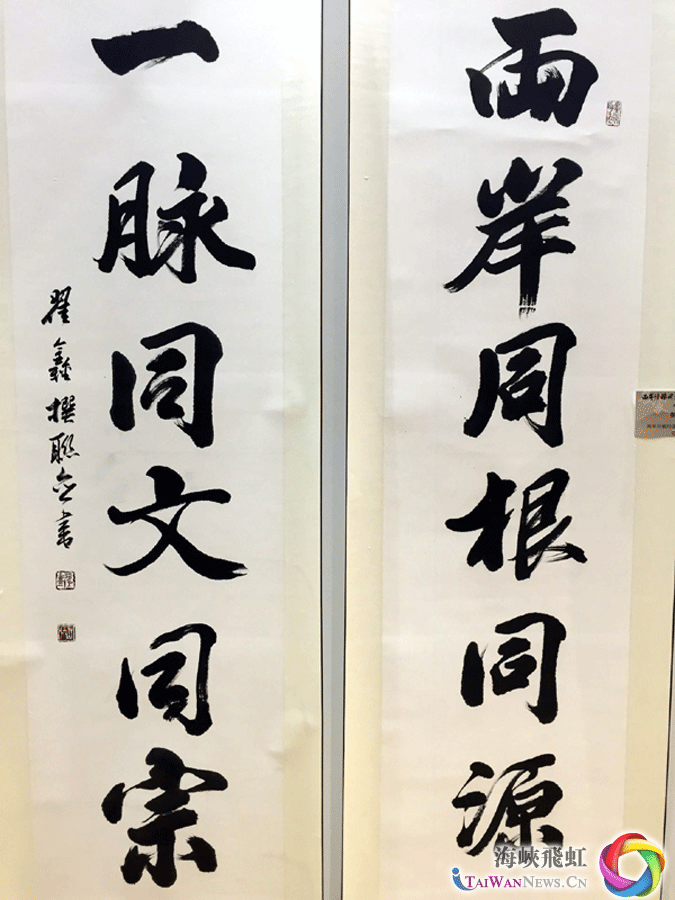 兩岸同根同源
一脉同文同宗
翟鑫撰聯并書
海峽飛虹
TAIWANNEWS.CN